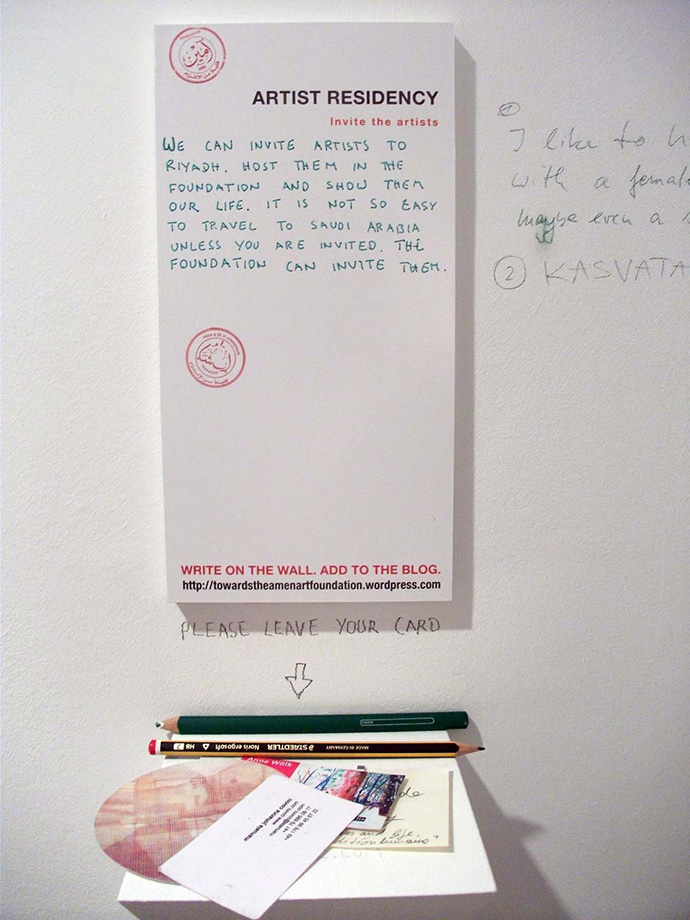 آمين
ARTIST RESIDENCY
Invite the artists
WE CAN INVITE ARTISTS TO
RIYADH. HOST THEM IN THE
FOUNDATION AND SHOW THEM
OUR LIFE. IT IS NOT SO EASY
TO TRAVEL TO SAUDI ARABIA
UNLESS YOU ARE INVITED. THE
FOUNDATION CAN INVITE THEM.
WRITE ON THE WALL. ADD TO THE BLOG.
http://towardstheamenartfoundation.wordpress.com
PLEASE LEAVE YOUR CARD
①
I like to
with a female
maybe even a
② KASVATA
MADE IN GERMANY
STAEDTLER Noris ergosoft HB 2
Anne Walk
manuela johanna covini
www.covini.com